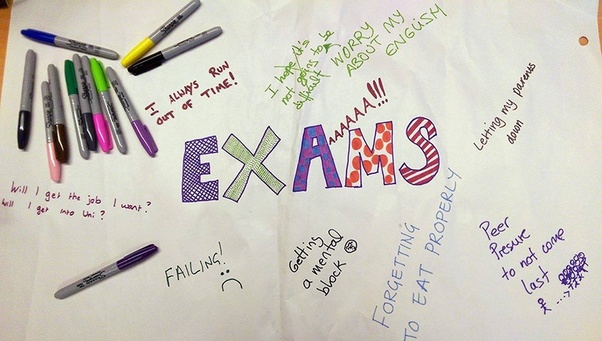 I ALWAYS RUN
OUT OF TIME!
I hope it's
not going to be
difficult
WORRY
ABOUT MY
ENGLISH
AAAAAA!!!
EXAMS
Letting my parents
down
Will I get the job I want?
Will I get into Uni?
FAILING!
Getting
a mental
block
FORGETTING
TO EAT PROPERLY
Peer
Presure
to not come
last